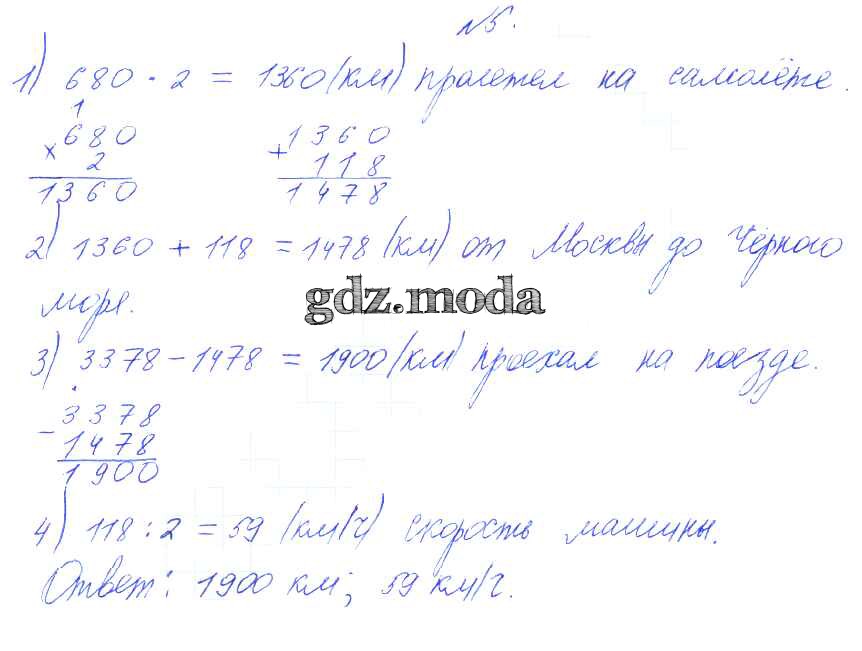 №5.
1) 680 · 2 = 1360 (км) пролетел на самолёте.
1
× 680
2
1360
+ 1360
118
1478
2) 1360 + 118 = 1478 (км) от Москвы до Чёрного
моря.
gdz.moda
3) 3378 - 1478 = 1900 (км) проехал на поезде.
- 3378
1478
1900
4) 118 : 2 = 59 (км/ч) скорость машины.
Ответ: 1900 км; 59 км/ч.